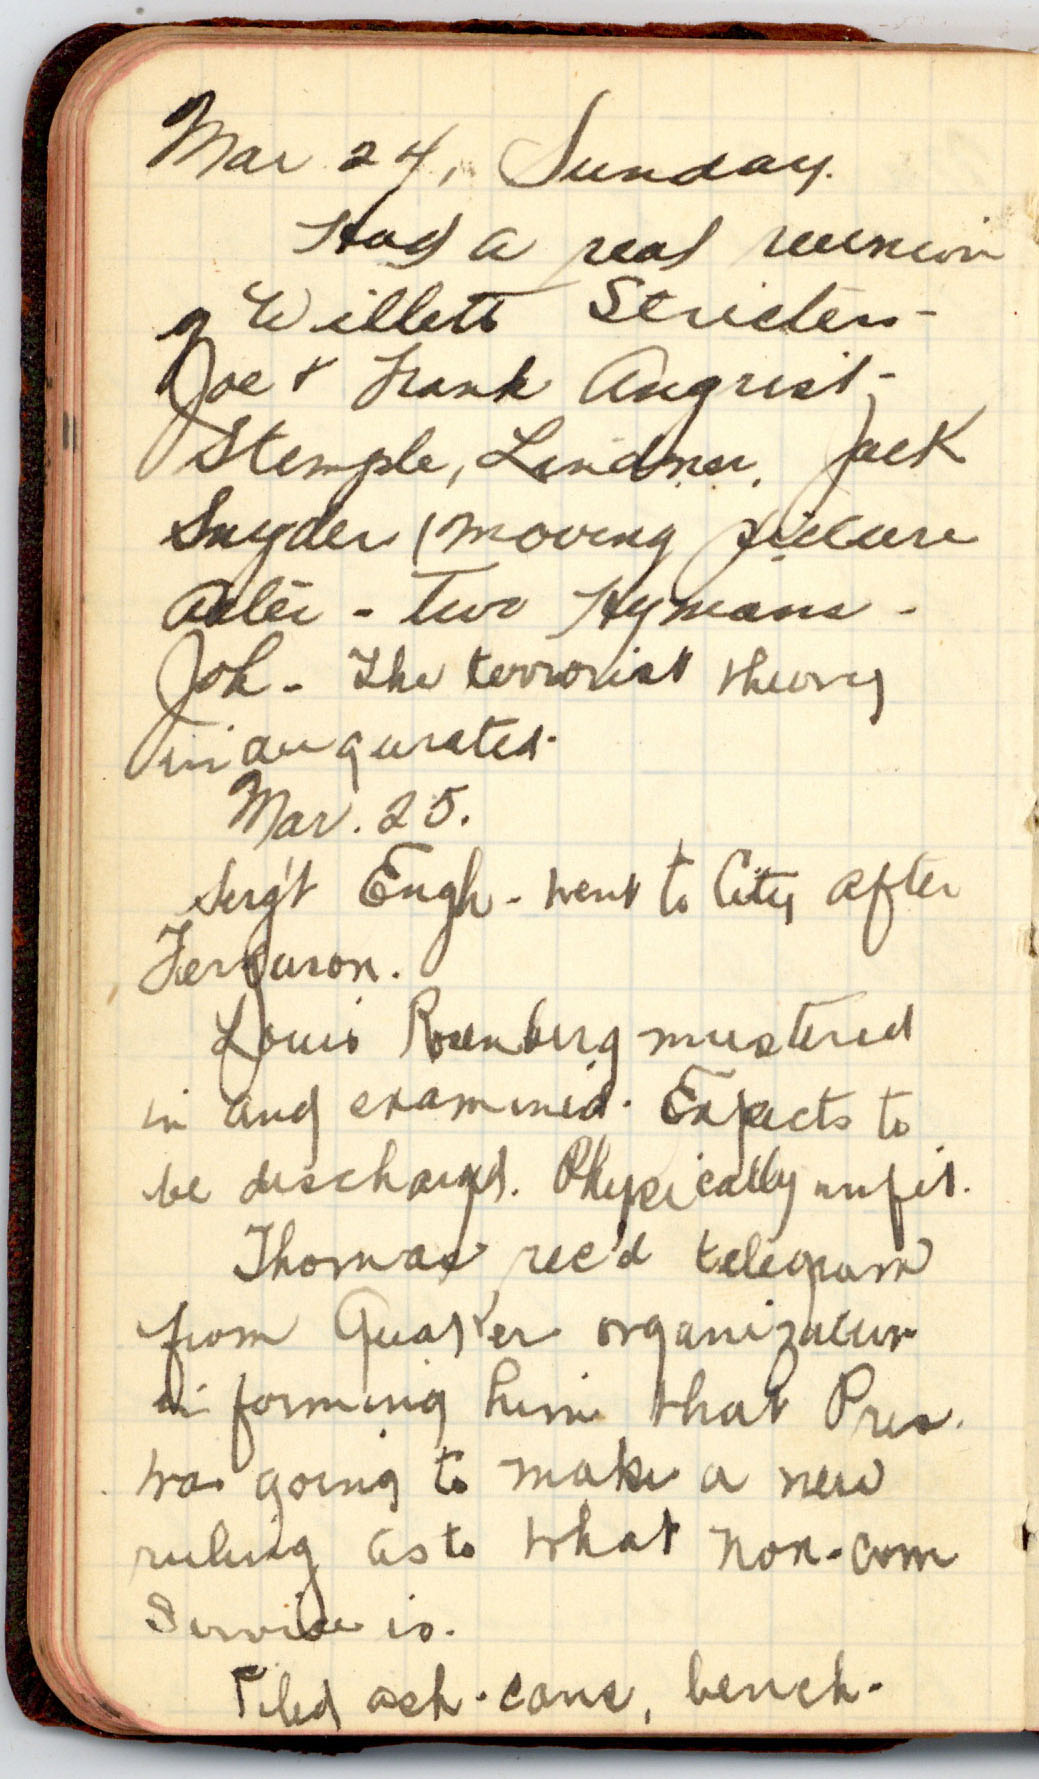 Mar 24, Sunday.
Had a real reunion
of Willett Stricters -
Joe & Frank Augrist -
Stemple, Lindner, Jack
Snyder, moving picture
Actor - Two Hymans -
Joh - The terrorist theory
inaugurated.
Mar. 25.
Serg't Engh - went to City after
Ferguson.
Louis Rosenberg mustered
in and examined. Expects to
be discharged. Physically unfit.
Thomas rec'd telegram
from Quaker organization
informing him that Pres.
was going to make a new
ruling as to what non-com
Service is.
Piled ash-cans, bench-